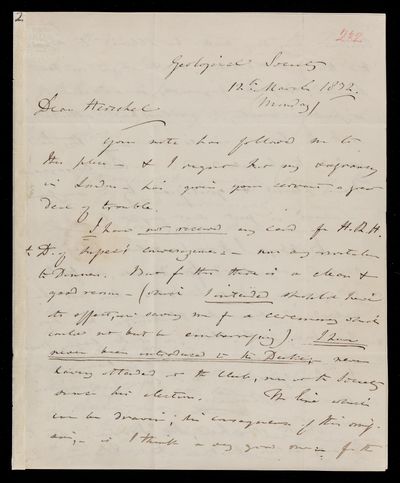 2
252
Geological Society
12th March 1832.
Monday
Dear Herschel
Your note has followed me to
this place - & I regret that my
in London - has given your servant a great
deal of trouble.
I have not received any card for H.R.H.
the D. of Sussex's conversazione - nor any invitation
to Dinner. But for this there is a clean &
good reason - (which I intended should have
its effect, in saving me from a ceremony which
could not but be embarrassing). I have
never been introduced to the Duke, - never
having attended at the Club, nor at the Society
since his election. The line which
can be drawn, in consequence of this
- is I think a very good one - for the